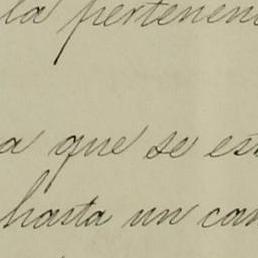 la pertenen
a que se es
hasta un can